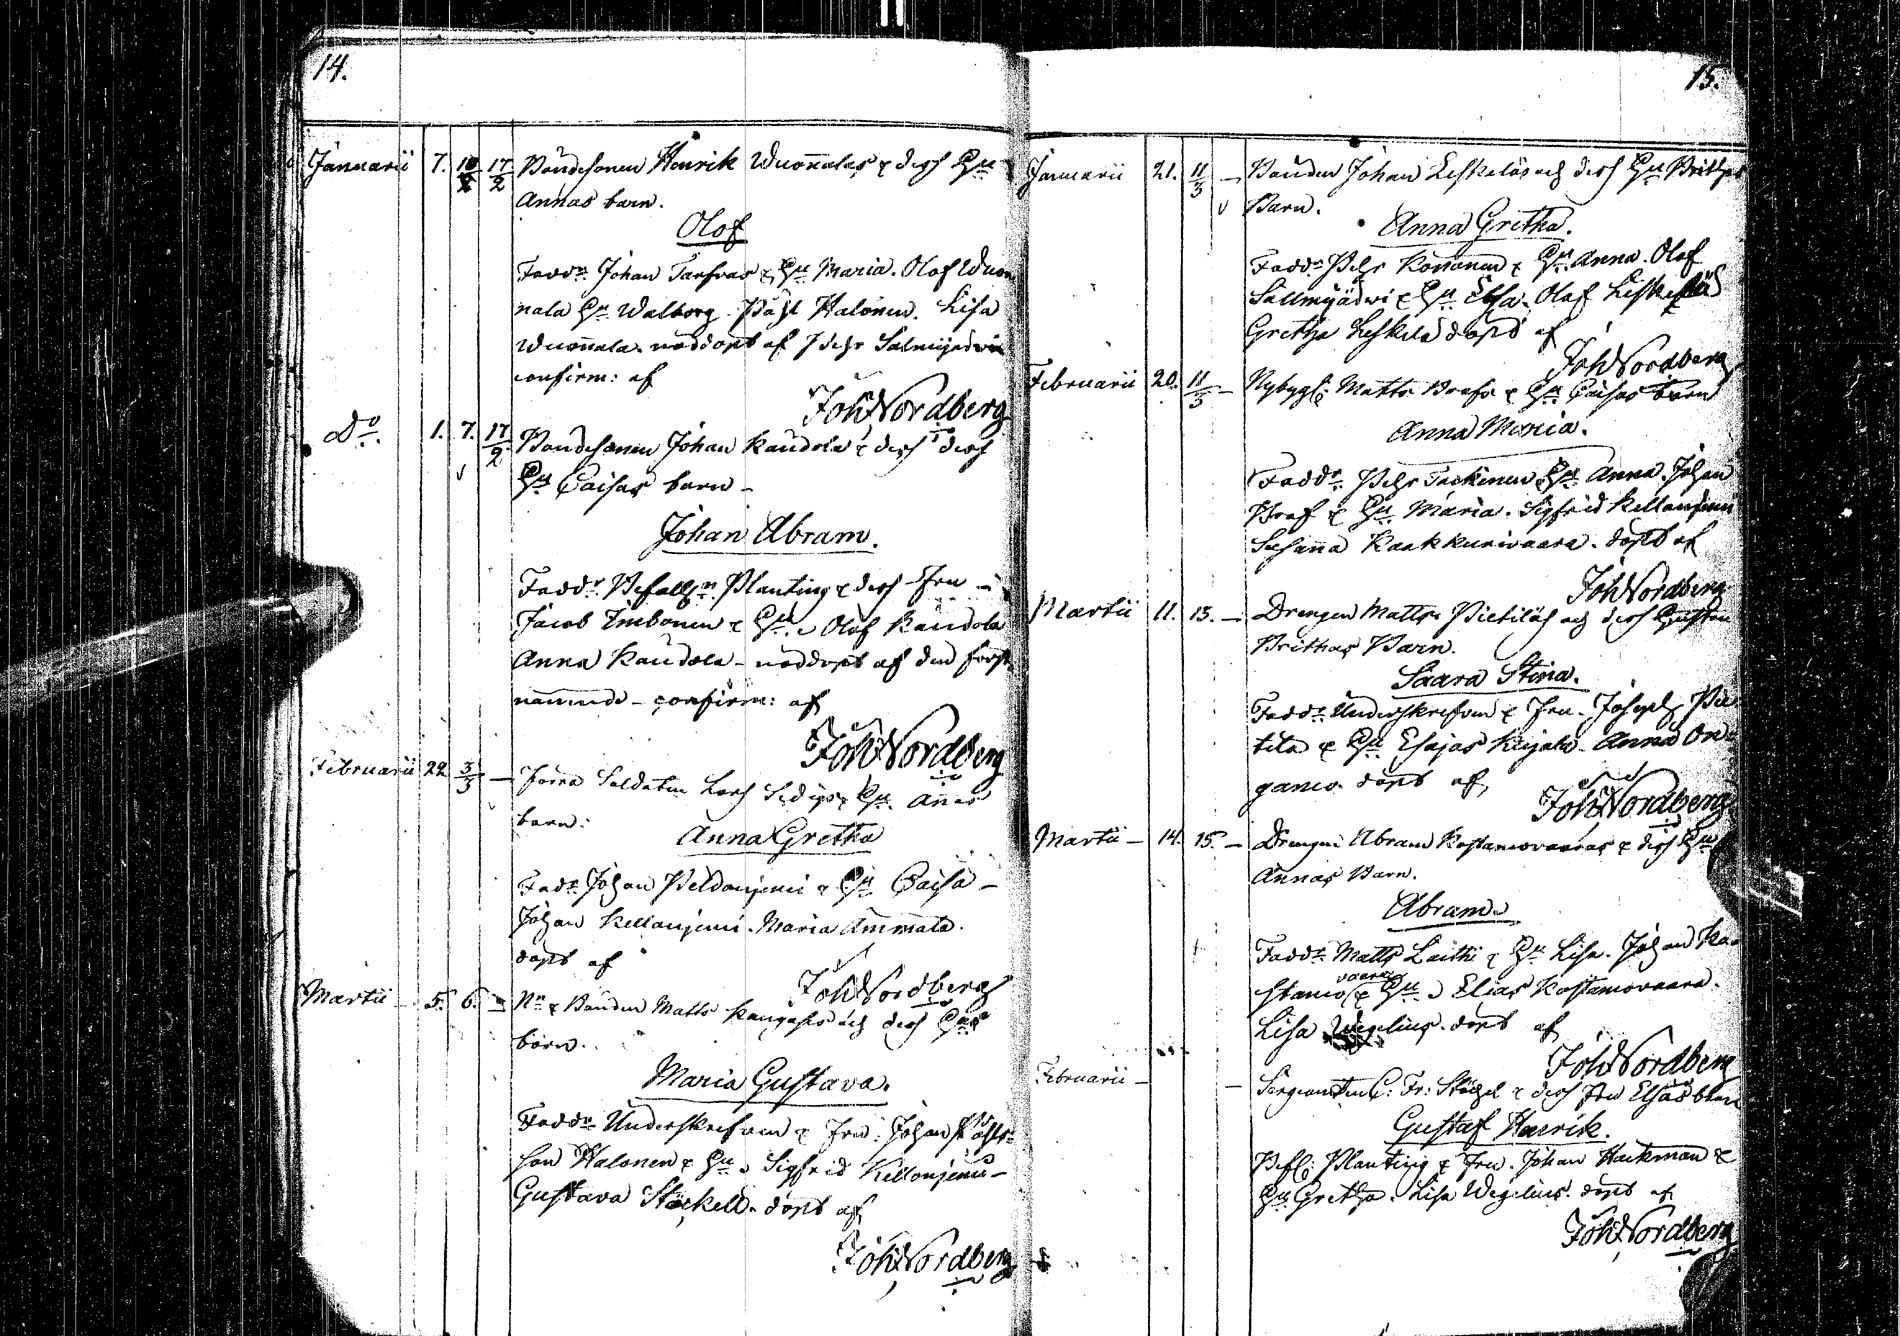 14.
Januarii 7. 10/2 17/2 Bondesonen Henrik Wuonnalas & dess Hu
Annas barn.
Olof
Fadd: Johan Tarfvas & Hu Maria. Olof Wuon
nala Hu Walborg. Påhl Halonen. Lisa
Wuonnala. nöddöpt af Pehr Salmijerwi
confirm: af
Joh Nordberg
Do 1. 7. 17/2 Bondesonen Johan Kaudola & dess dess
Hu Caisas barn
Johan Abram.
Fadd: Befalln Planting & dess Fru
Jacob Imbonen & Hu. Olof Kaudola
Anna Kaudola nöddöpt af den först
nämnde confirm: af
Joh Nordberg
Februarii 22 3/3 förra Soldaten Lars Hu Annas
barn.
Anna Gretha
Fadd: Johan Peldonjemi & Hu Caisa
Johan Kellonjemi. Maria Ammata.
döpt af
Joh Nordberg
Martii 5. 6. Nn & Bonden Matts Kangas och dess Hus
barn.
Maria Gustava.
Fadd: Underskrefven & Fru. Johan Påhls
son Halonen & Hu. Sigfrid Kellonjemi
Gustava Stöckell. döpt af
Joh Nordberg
15.
Januarii 21. 11/3 Bonden Johan Leskeläs och dess Hu Brithas
Barn.
Anna Gretha.
Fadd: Pehr Korvanen & Hu Anna. Olof
Sallmijärwi & Hu Elsa. Olof Leskelä
Gretha Leskelä döpt af
Joh Nordberg
Februarii 20. 11/3 Nybygg: Matts Brefs & Hu Caisas barn
Anna Maria.
Fadd: Pehr Tackinen Hu Anna. Johan
Bref & Hu Maria. Sigfrid Kellonjemi
Susanna Kaakkurivaara. döpt af
Joh Nordberg
Martii 11. 13. Drengen Matts Pietiläs och dess Hustru
Brithas Barn.
Saara Stina.
Fadd: Underskrefven & Fru. Joseph Pie
tilä & Hu Esajas Anna On
gamo. döpt af
Joh Nordberg
Martii 14. 15. Drengen Abram Kostamovaaras & dess Hu
Annas Barn.
Abram.
Fadd: Matts Laithi & Hu Lisa. Johan Ko
stamo vaara & Hu. Elias Kostamovaara.
Lisa Wegelius. döpt af
Joh Nordberg
Februarii Sergeanten C: Fr: Stöckel & dess Fru Elsas barn
Gustaf Henrik.
Bef: Planting & Fru. Johan Hackman &
Hu Gretha. Lisa Wegelius. döpt af
Joh Nordberg